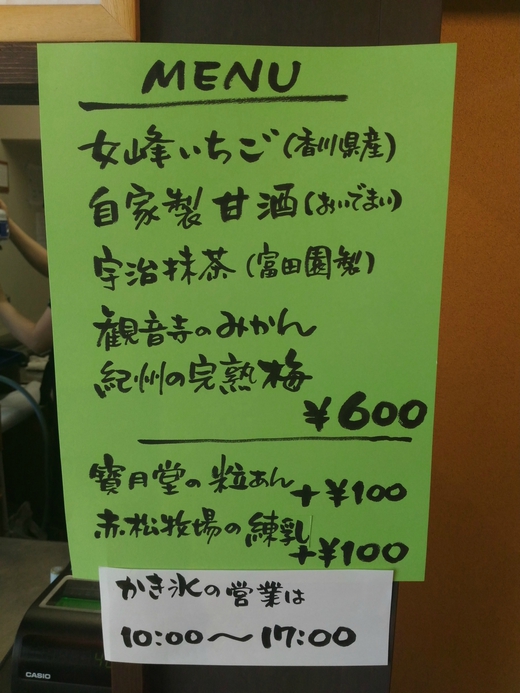 MENU
女峰いちご(香川県産)
自家製甘酒(おいでまい)
宇治抹茶(富田園製)
観音寺のみかん
紀州の完熟梅
¥600
寳月堂の粒あん+¥100
赤松牧場の練乳+¥100
かき氷の営業は
10:00〜17:00
CASIO